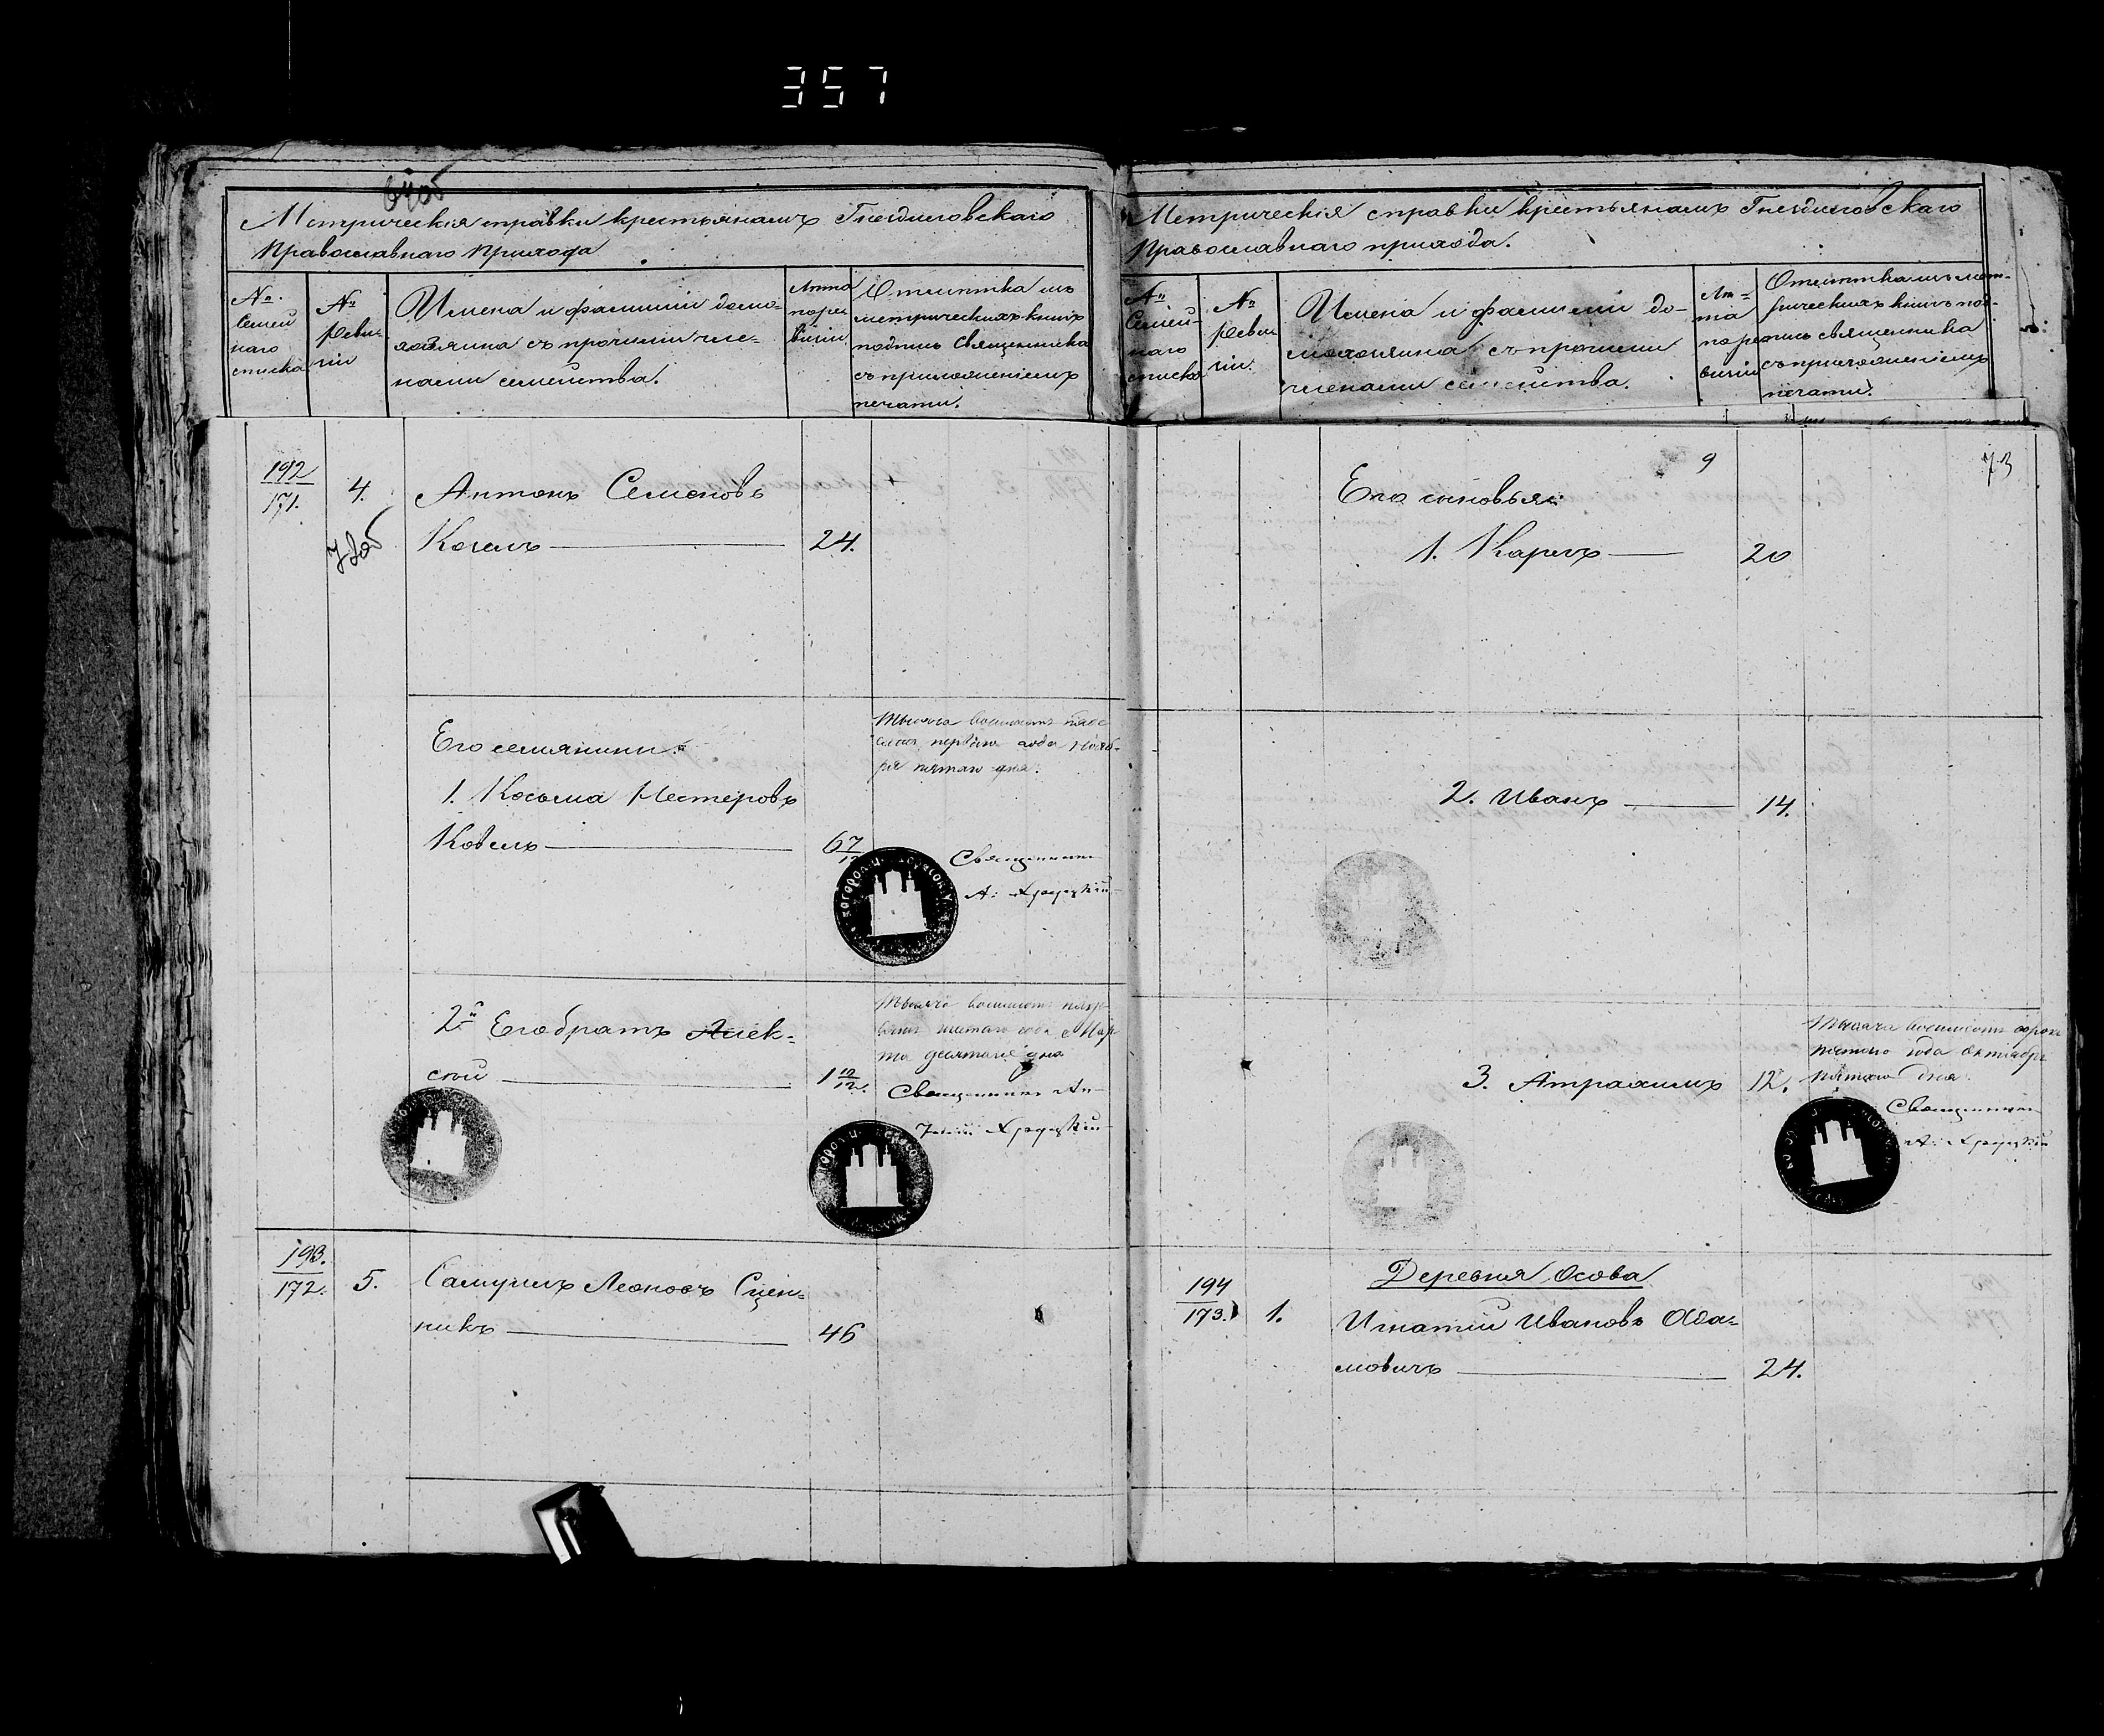 357
Метрическія справки крестьянамъ Гнездиловскаго
Православнаго Прихода
№
Семей
наго
списка
№
Реви-
зіи
Имена и фамиліи домо-
хозяина съ прочими чле-
нами семейства.
Лета
по ре-
визіи
Отметка изъ
метрическихъ книгъ
подпись Священника
съ приложеніемъ
печати.
192
171.
4.
Антонъ Семеновъ
24.
Его семянины:
1. Косьма Нестеровъ
Козелъ
67
Тысяча восемсотъ
перваго года Нояб-
ря пятаго дня.
Священникъ
А.
2й Его братъ Алек-
сей
1 10/12.
Тысяча восемсотъ
шестаго года Мар-
та десятаго дня
Священникъ Ан-
193.
172.
5.
Самуилъ Леоновъ Сцен-
никъ
46
Метрическія справки крестьянамъ Гнездиловскаго
Православнаго прихода.
№
Семей-
наго
списка
№
Реви
зіи.
Имена и фамиліи до-
мохозяина съ прочими
членами семейства.
Ле-
та
по ре
визіи
Отметка изъ мет-
рическихъ книгъ под-
пись священника
съ приложеніемъ
печати.
9
73
Его сыновья:
1. Карпъ
20
2. Иванъ
14.
3. Атрахимъ
12.
Тысяча восемсотъ сорокъ
пятаго года Октября
пятаго дня.
Священникъ
А.
Деревня Осова
194
173.
1.
Игнатій Ивановъ Ада-
мовичъ
24.